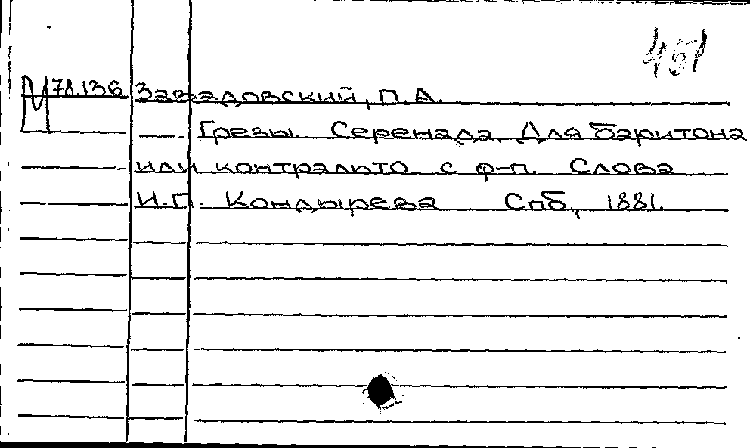 451
М 78.136 Завадовский, П.А.
— Грезы. Серенада. Для баритона
или контральто с ф-п. Слова
И.П. Кондырева Спб, 1881.